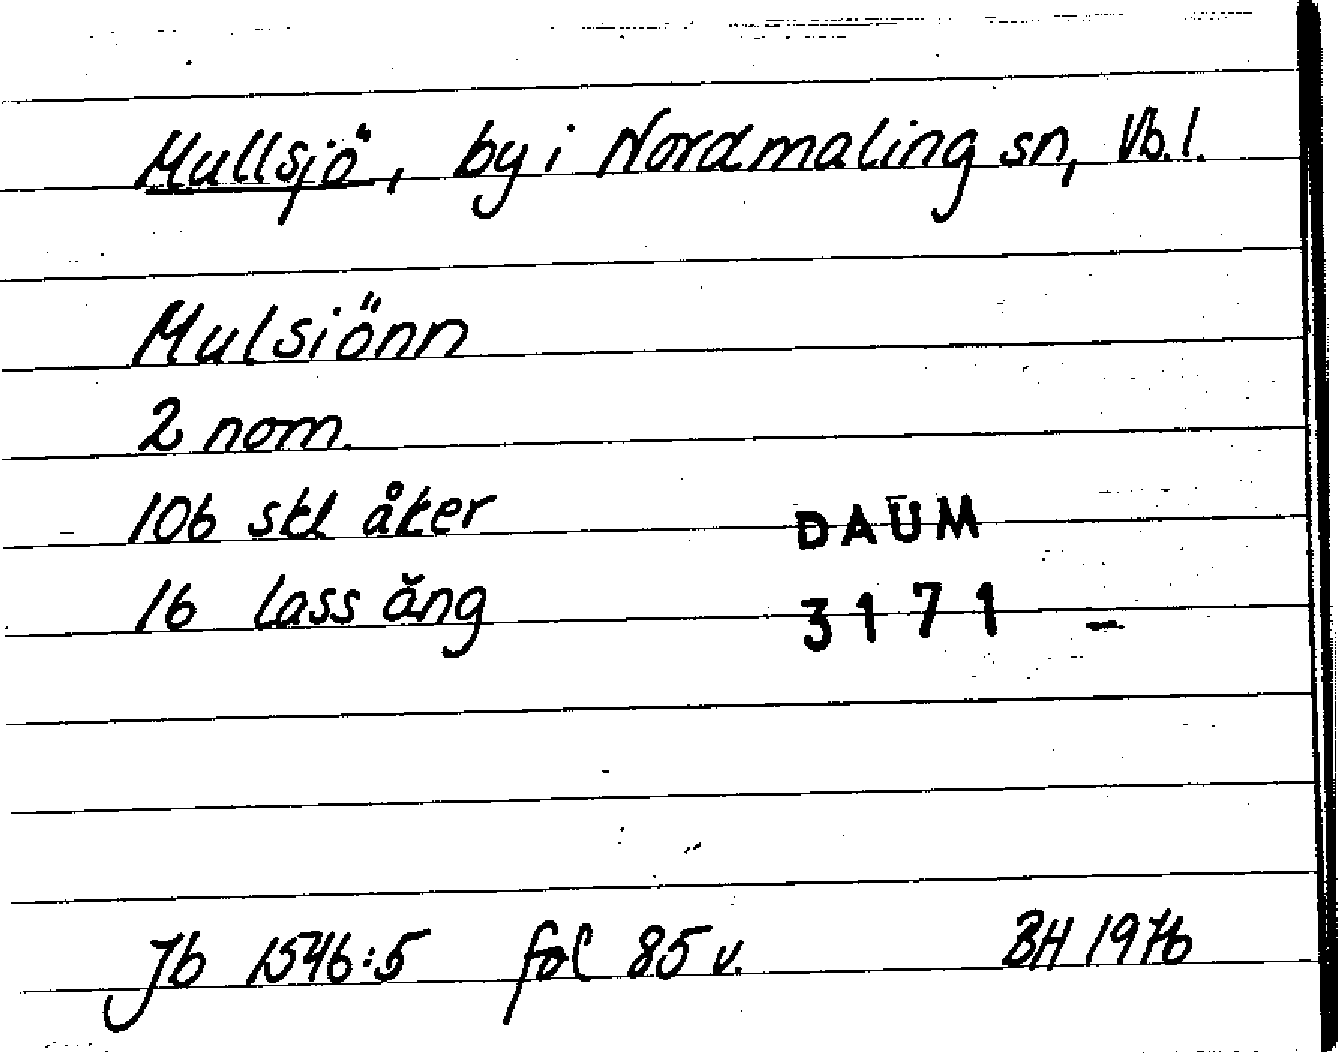 Mullsjö, by i Nordmaling sn, Vb.l.
Mulsiönn
2 nom.
106 skl åker
DAUM
16 lass äng
3171 -
Jb 1546:5 fol 85 v. BH 1976